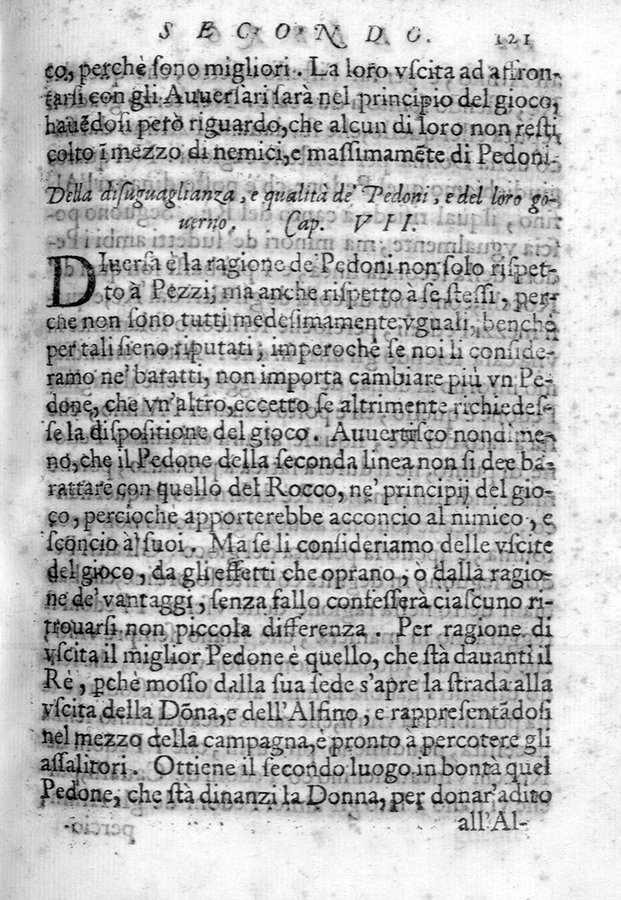 SECONDO. 121
co, perchè ſono migliori. La loro vſcita ad affron-
tarsi con gli Auuerſari ſarà nel principio del gioco,
hauẽdoſi però riguardo, che alcun di loro non reſti
colto ĩ mezzo di nemici, e maſſimamẽte di Pedoni.
Della diſuguaglianza, e qualità de' Pedoni, e del loro go-
uerno. Cap. VII.
DIuerſa è la ragione de' Pedoni non ſolo riſpet-
to à Pezzi; ma anche riſpetto à ſe ſteſſi, per-
che non ſono tutti medeſimamente vguali, benchè
per tali ſieno riputati; imperochè ſe noi li conſide-
ramo ne' baratti, non importa cambiare più vn Pe-
done, che vn'altro, eccetto ſe altrimente richiedeſ-
ſe la diſpoſitione del gioco. Auuertiſco nondime-
no, che il Pedone della ſeconda linea non ſi dee ba-
rattare con quello del Rocco, ne' principij del gio-
co, percioche apporterebbe acconcio al nimico, e
ſconcio à ſuoi. Ma ſe li conſideriamo delle vſcite
del gioco, da gli effetti che oprano, ò dalla ragio-
ne de' vantaggi, ſenza fallo confeſſerà ciaſcuno ri-
trouarsi non piccola differenza. Per ragione di
vſcita il miglior Pedone è quello, che ſtà dauanti il
Rè, ꝑchè moſſo dalla ſua ſede s'apre la ſtrada alla
vſcita della Dõna, e dell'Alfino, e rappreſentãdoſi
nel mezzo della campagna, è pronto à percotere gli
aſſalitori. Ottiene il ſecondo luogo in bontà quel
Pedone, che ſtà dinanzi la Donna, per donar'adito
all'Al-